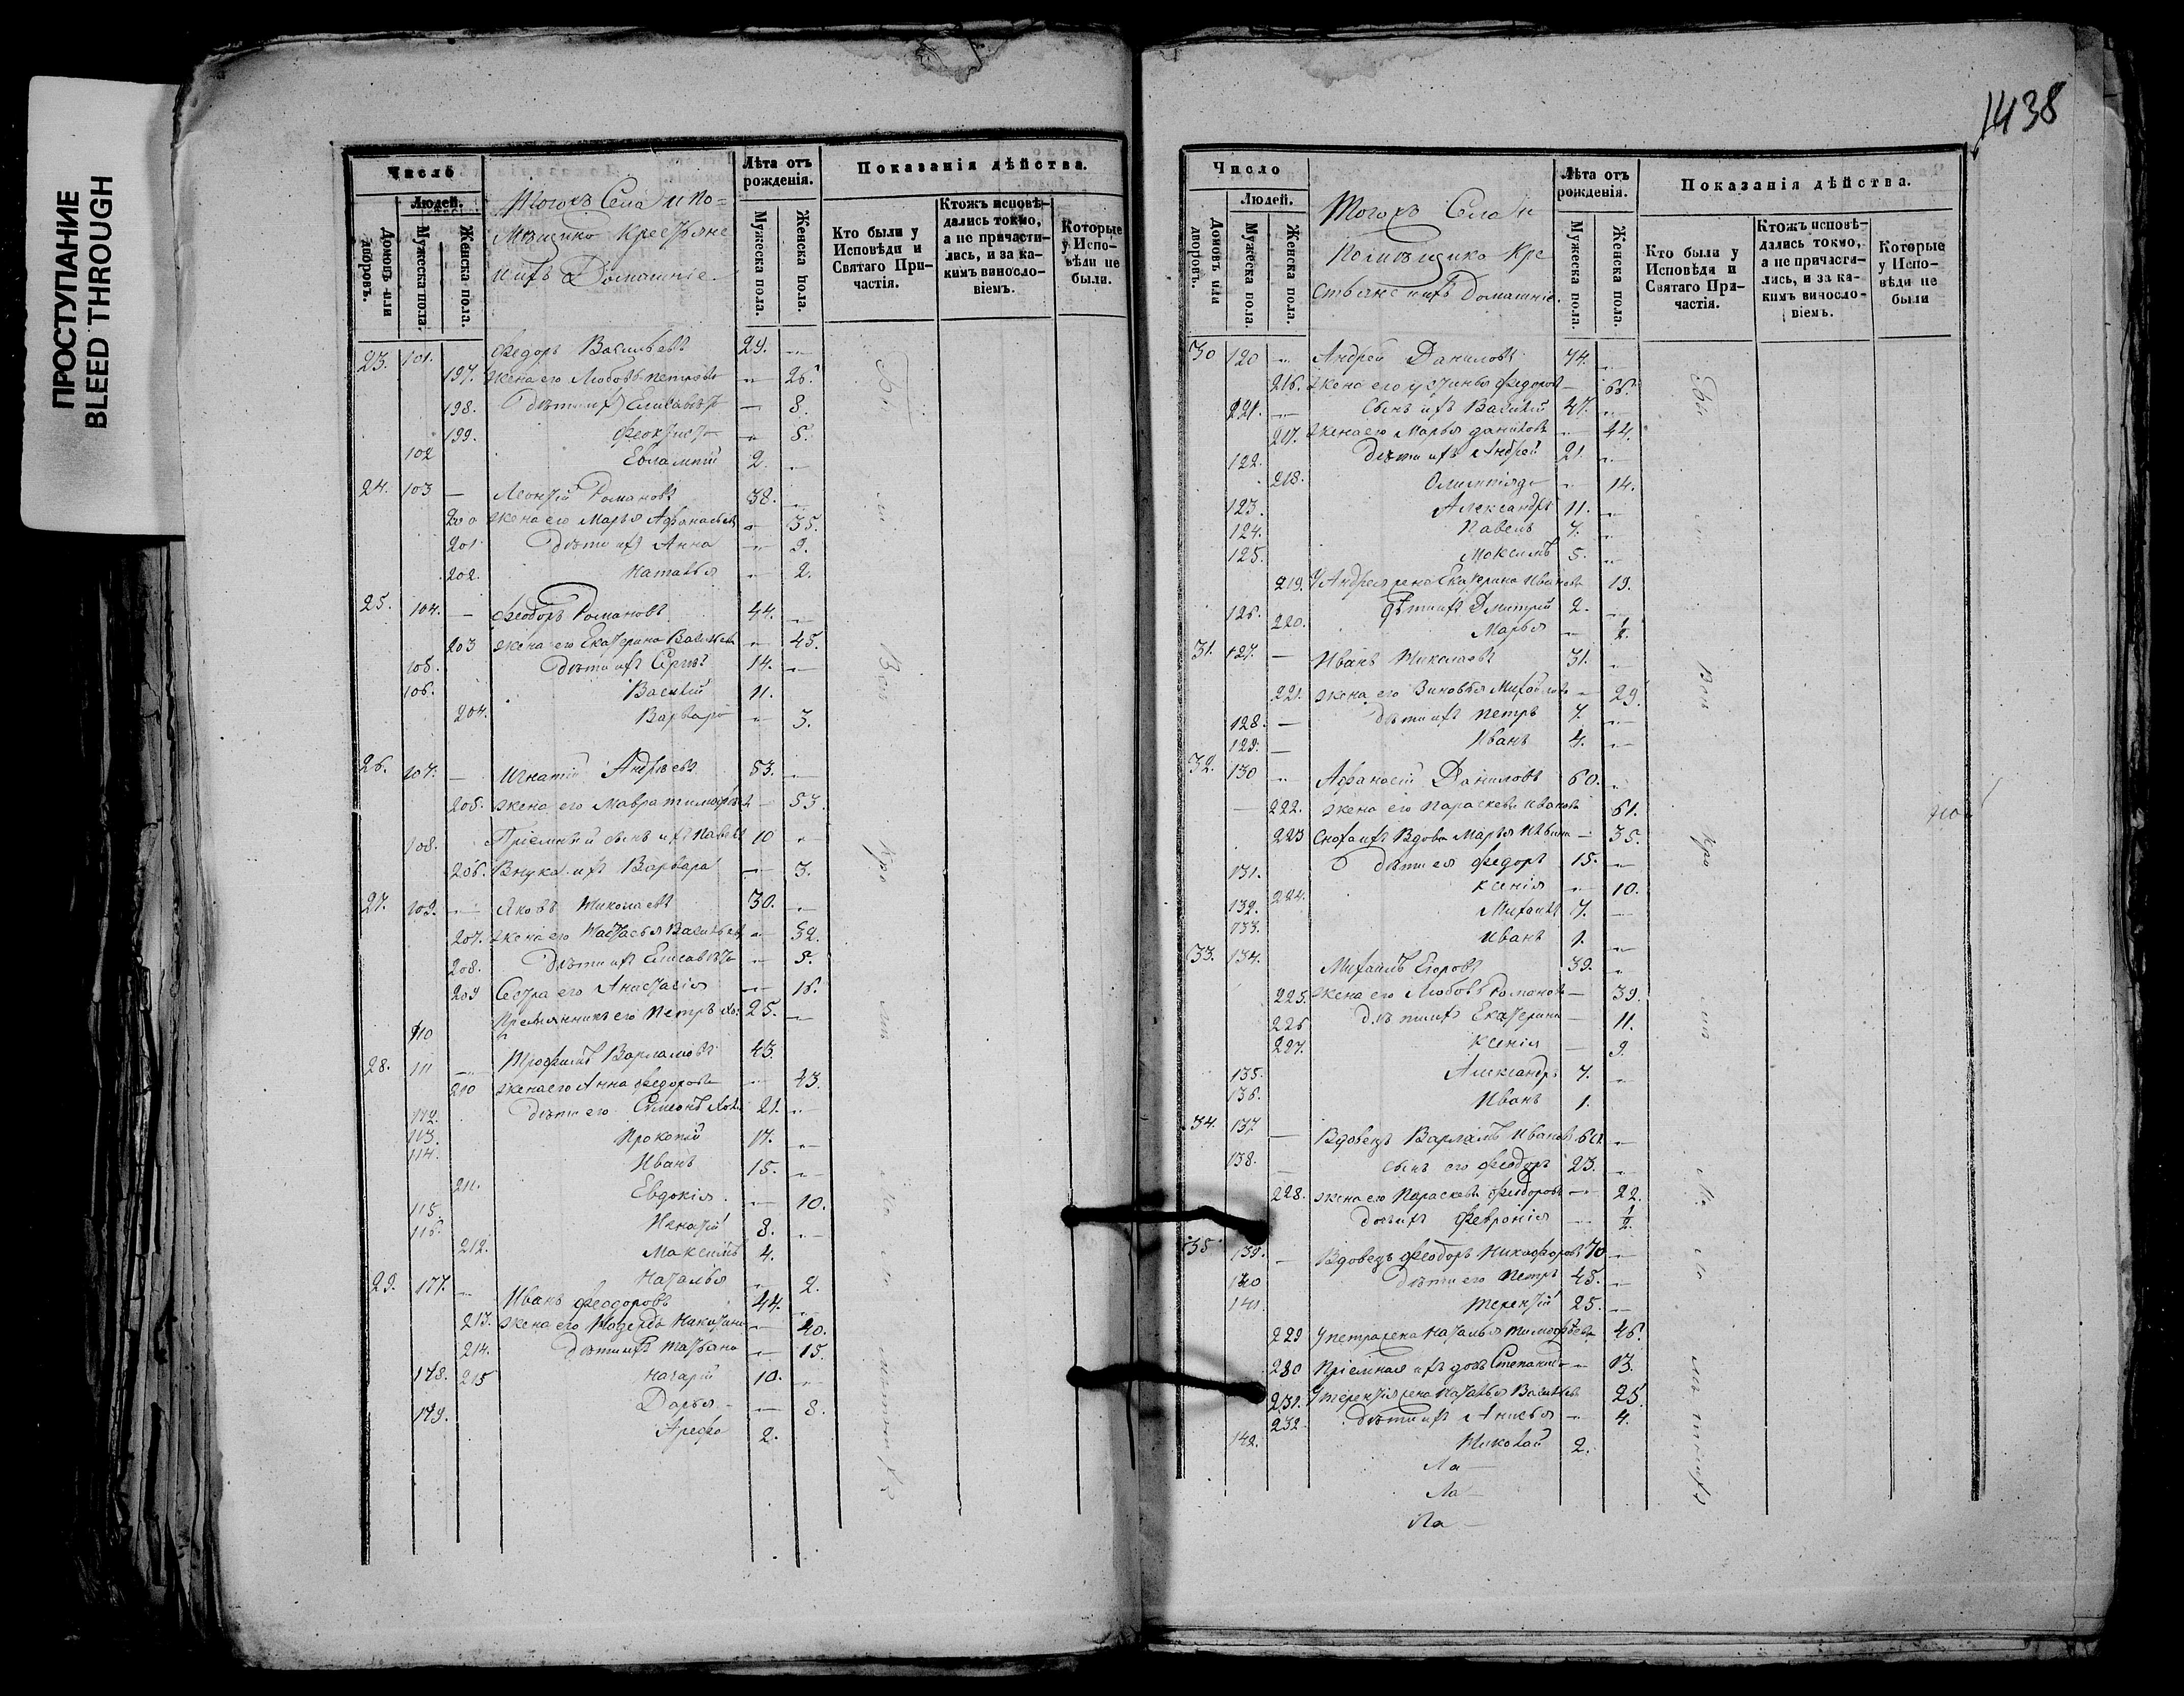 ПРОСТУПАНИЕ
BLEED THROUGH
Число
Людей.
Домовъ или дворовъ.
Мужеска пола.
Женска пола.
Тогожъ Села и по=
мѣщика Крестьяне
и ихъ Домашніе
Лѣта отъ рожденія.
Мужеска пола.
Женска пола.
Показанія дѣйства.
Кто были у Исповѣди и Святаго Причастія.
Ктожъ исповѣдались токмо, а не причастились, и за какимъ винословіемъ.
Которые у Исповѣди не были.
23. 101. Федоръ Васильевъ 29.
197. жена его Любовь Петрова 26.
198. дѣти ихъ Елисаветъ 8.
199. Феоктиста 5.
102 Евлампій 2.
24. 103 Леонтій Романовъ 38.
200 жена его Марья Афанасьева 35.
201 дѣти ихъ Анна 9.
202. Наталья 2.
25. 104. Феодоръ Романовъ 44.
203 жена его Екатерина Васильева 45.
105. дѣти ихъ Сергѣй 14.
106. Василій 11.
204. Варвара 3.
26. 107. Игнатій Андреевъ 53.
205. жена его Мавра Тимофеева 53.
108. Пріемный сынъ ихъ Павелъ 10
206. Внука ихъ Варвара 3.
27. 109. Яковъ Николаевъ 30.
207. жена его Настасья Васильева 32.
208. дѣти ихъ Елисавета 5.
209 Сестра его Анастасія 16.
110 Племянникъ его Петръ хол: 25.
28. 111 Трофимъ Варламовъ 43
210 жена его Анна Федорова 43.
112. дѣти его Симеонъ хол. 21.
113. Прокопій 17.
114. Иванъ 15.
211. Евдокія 10.
115. Игнатій 8.
116. Максимъ 4.
212. Наталья 2.
29. 117. Иванъ Феодоровъ 44.
213. жена его Надежда Никитина 40.
214. дѣти ихъ Татьяна 15.
118. Назарій 10.
215 Дарья 8.
119. Арефа 2.
1438
Число
Людей.
Домовъ или дворовъ.
Мужеска пола.
Женска пола.
Тогожъ Села и
Помѣщика Кре
стьяне и ихъ Домашніе.
Лѣта отъ рожденія.
Мужеска пола.
Женска пола.
Показанія дѣйства.
Кто были у Исповѣди и Святаго Причастія.
Ктожъ исповѣдались токмо, а не причастились, и за какимъ винословіемъ.
Которые у Исповѣди не были
30 120 Андрей Даниловъ 74.
216. жена его Устинья Федорова 66.
121. Сынъ ихъ Василій 47.
217. жена его Марья Данилова 44.
122. Дѣти ихъ Андрей 21.
218. Олимпіяда 14.
123. Александръ 11.
124. Павелъ 7.
125. Максимъ 5.
219. У Андрея жена Екатерина Иванова 19.
126. дѣти ихъ Дмитрій 2.
220. Марья 1/2.
31. 127. Иванъ Николаевъ 31.
221. жена его Зиновья Михайлова 29.
128. дѣти ихъ Петръ 7.
129. Иванъ 4.
32. 130 Афанасій Даниловъ 60.
222. жена его Параскева Иванова 61.
223 Сноха ихъ Вдова Марья Ивана 35.
131. дѣти ея Федоръ 15.
224. Ксенія 10.
132. Михаилъ 7.
133. Иванъ 1.
33. 134. Михаилъ Егоровъ 39.
225. жена его Любовь Романова 39.
226 дѣти ихъ Екатерина 11.
227. Ксенія 9.
135. Александръ 7.
136. Иванъ 1.
34. 137 Вдовецъ Варламъ Ивановъ 60.
138. сынъ его Феодоръ 23.
228. жена его Параскева Федорова 22.
дочь ихъ Февронія 1/2.
35 139. Вдовецъ Феодоръ Никифоровъ 70
140 дѣти его Петръ 45.
141. Терентій 25.
229 У Петра жена Наталья Тимофеева 46.
230 Пріемная ихъ дочь Степанида 13.
231. У Терентія жена Наталья Васильева 25.
232. дѣти ихъ Анисья 4.
142. Николай 2.